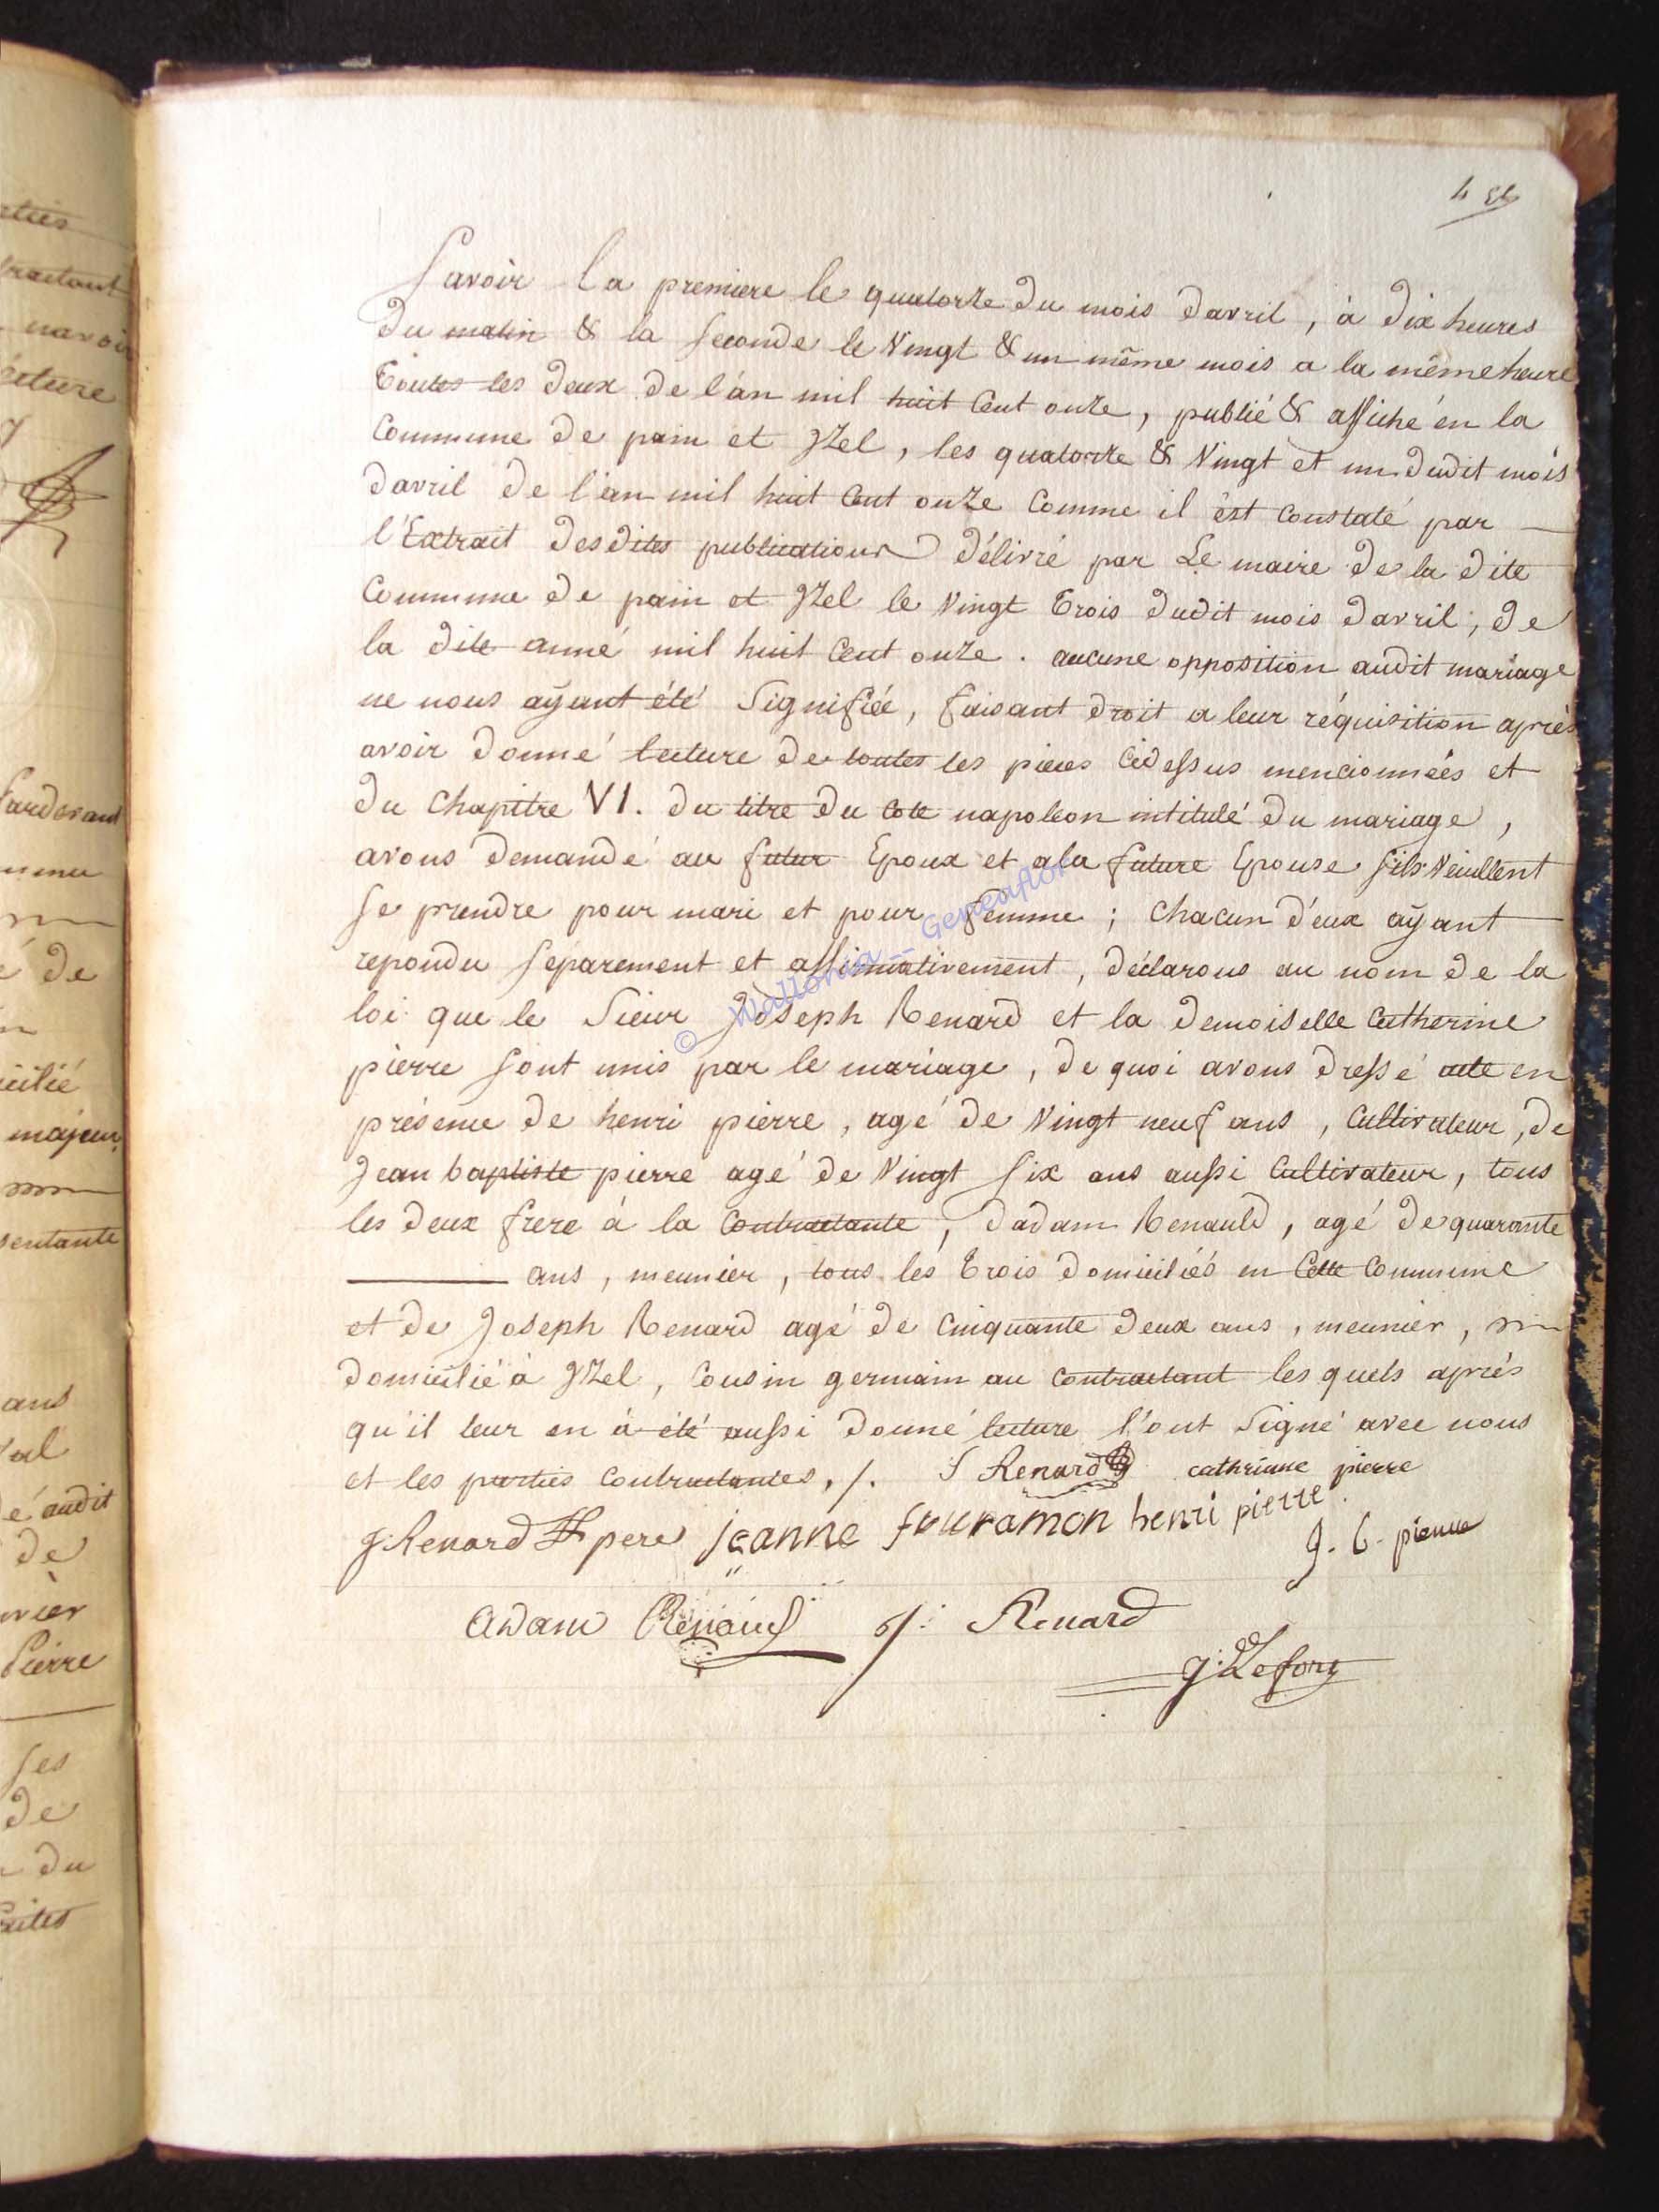 Savoir la premiere le quatorze du mois davril, à dix heures
du matin & la seconde le vingt & un même mois a la même heure
toutes les deux de l'an mil huit cent onze, publié & affiché en la
commune de pain et Jzel, les quatorze & vingt et un dudit mois
davril de l'an mil huit cent onze comme il est constaté par
l'Extrait desdites publications délivré par Le maire de la dite
commune de pain et Jzel le vingt trois dudit mois davril, de
la dite anné mil huit cent onze. aucune opposition audit mariage
ne nous aÿant été signifiée, faisant droit a leur réquisition après
avoir donné lecture de toutes les pieces cidessus mencionnées et
du chapitre VI. du titre du code napoleon intitulé du mariage,
avons demandé au futur Epoux et a la future Epouse s'ils veuillent
se prendre pour mari et pour femme ; chacun d'eux aÿant
repondu séparement et affirmativement, déclarons au nom de la
loi que le Sieur Joseph Renard et la demoiselle catherine
pierre sont unis par le mariage, de quoi avons dressé acte en
présence de henri pierre, agé de vingt neuf ans, cultivateur, de
Jean baptiste pierre agé de vingt six ans aussi cultivateur, tous
les deux frere à la contractante, dadam Renauld, agé de quarante
ans, meunier, tous les trois domiciliés en cette commune
et de Joseph Renard agé de cinquante deux ans, meunier,
domicilié à Jzel, cousin germain au contractant les quels après
qu'il leur en à été aussi donné lecture l'ont signé avec nous
et les parties contractantes. /. J Renard cathrinne pierre
J Renard pere jeanne fouramon henri pierre
J. b. pierre
adam Renaud J: Renard
J: Lefort
ans
de
Pierre
ses
de
du
© Wallonia - Geneaflor